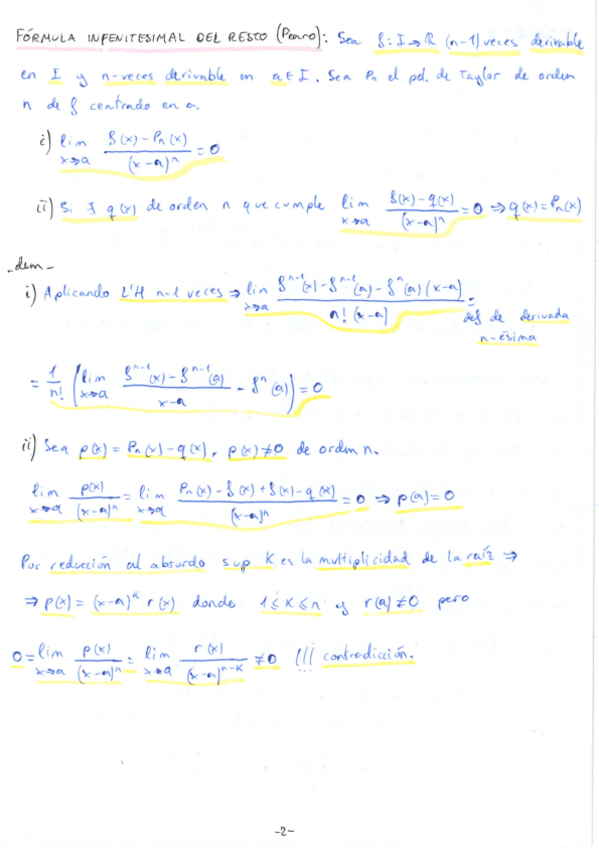 FÓRMULA INFENITESIMAL DEL RESTO (Peano): Sea f: I → ℝ (n-1) veces derivable
en I y n-veces derivable en a ∈ I. Sea Pn el pol. de Taylor de orden
n de f centrado en a.
i) lim x→a (f(x) - Pn(x))/(x-a)^n = 0
ii) Si ∃ q(x) de orden n que cumple lim x→a (f(x) - q(x))/(x-a)^n = 0 ⇒ q(x) = Pn(x)
-dem-
i) Aplicando L'H n-1 veces ⇒ lim x→a (f^n-1(x) - f^n-1(a) - f^n(a)(x-a))/(n! (x-a)) =
def de derivada
n-ésima
= 1/n! (lim x→a (f^n-1(x) - f^n-1(a))/(x-a) - f^n(a)) = 0
ii) Sea p(x) = Pn(x) - q(x), p(x) ≠ 0 de orden n.
lim x→a p(x)/(x-a)^n = lim x→a (Pn(x) - f(x) + f(x) - q(x))/(x-a)^n = 0 ⇒ p(a) = 0
Por reducción al absurdo sup K es la multiplicidad de la raíz ⇒
⇒ p(x) = (x-a)^K r(x) donde 1 ≤ K ≤ n y r(a) ≠ 0 pero
0 = lim x→a p(x)/(x-a)^n = lim x→a r(x)/(x-a)^n-K ≠ 0 !!! contradicción.
-2-